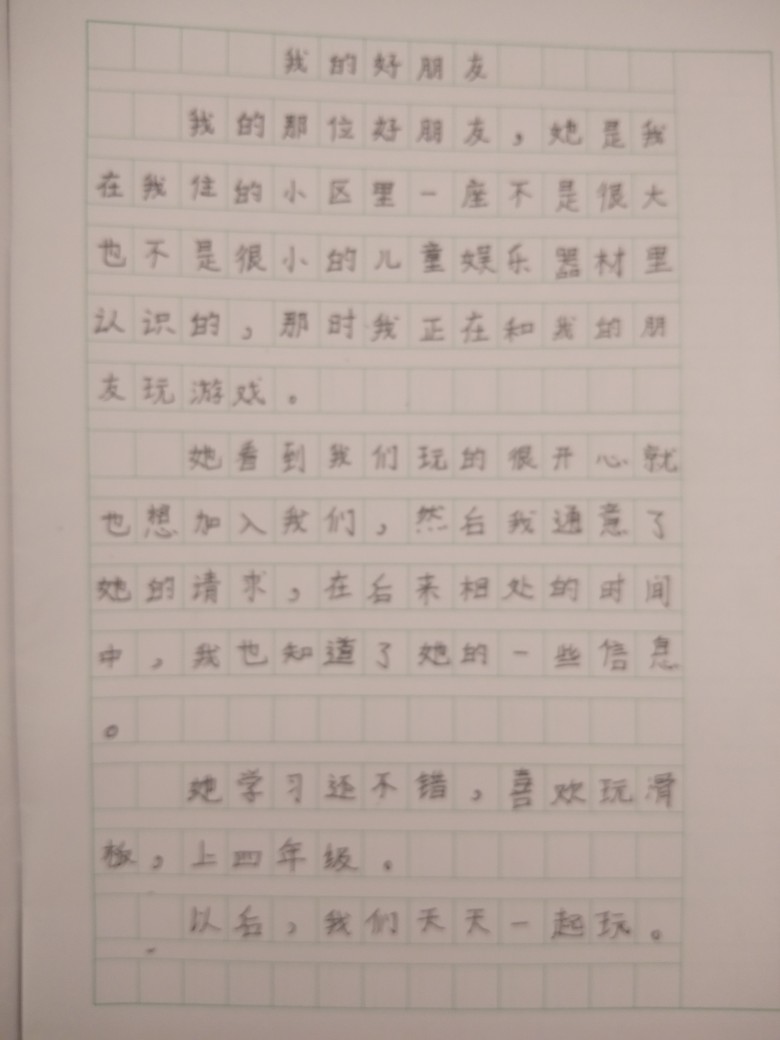 我的好朋友
我的那位好朋友，她是我
在我住的小区里一座不是很大
也不是很小的儿童娱乐器材里
认识的，那时我正在和我的朋
友玩游戏。
她看到我们玩的很开心就
也想加入我们，然后我通意了
她的请求，在后来相处的时间
中，我也知道了她的一些信息
。
她学习还不错，喜欢玩滑
板，上四年级。
以后，我们天天一起玩。